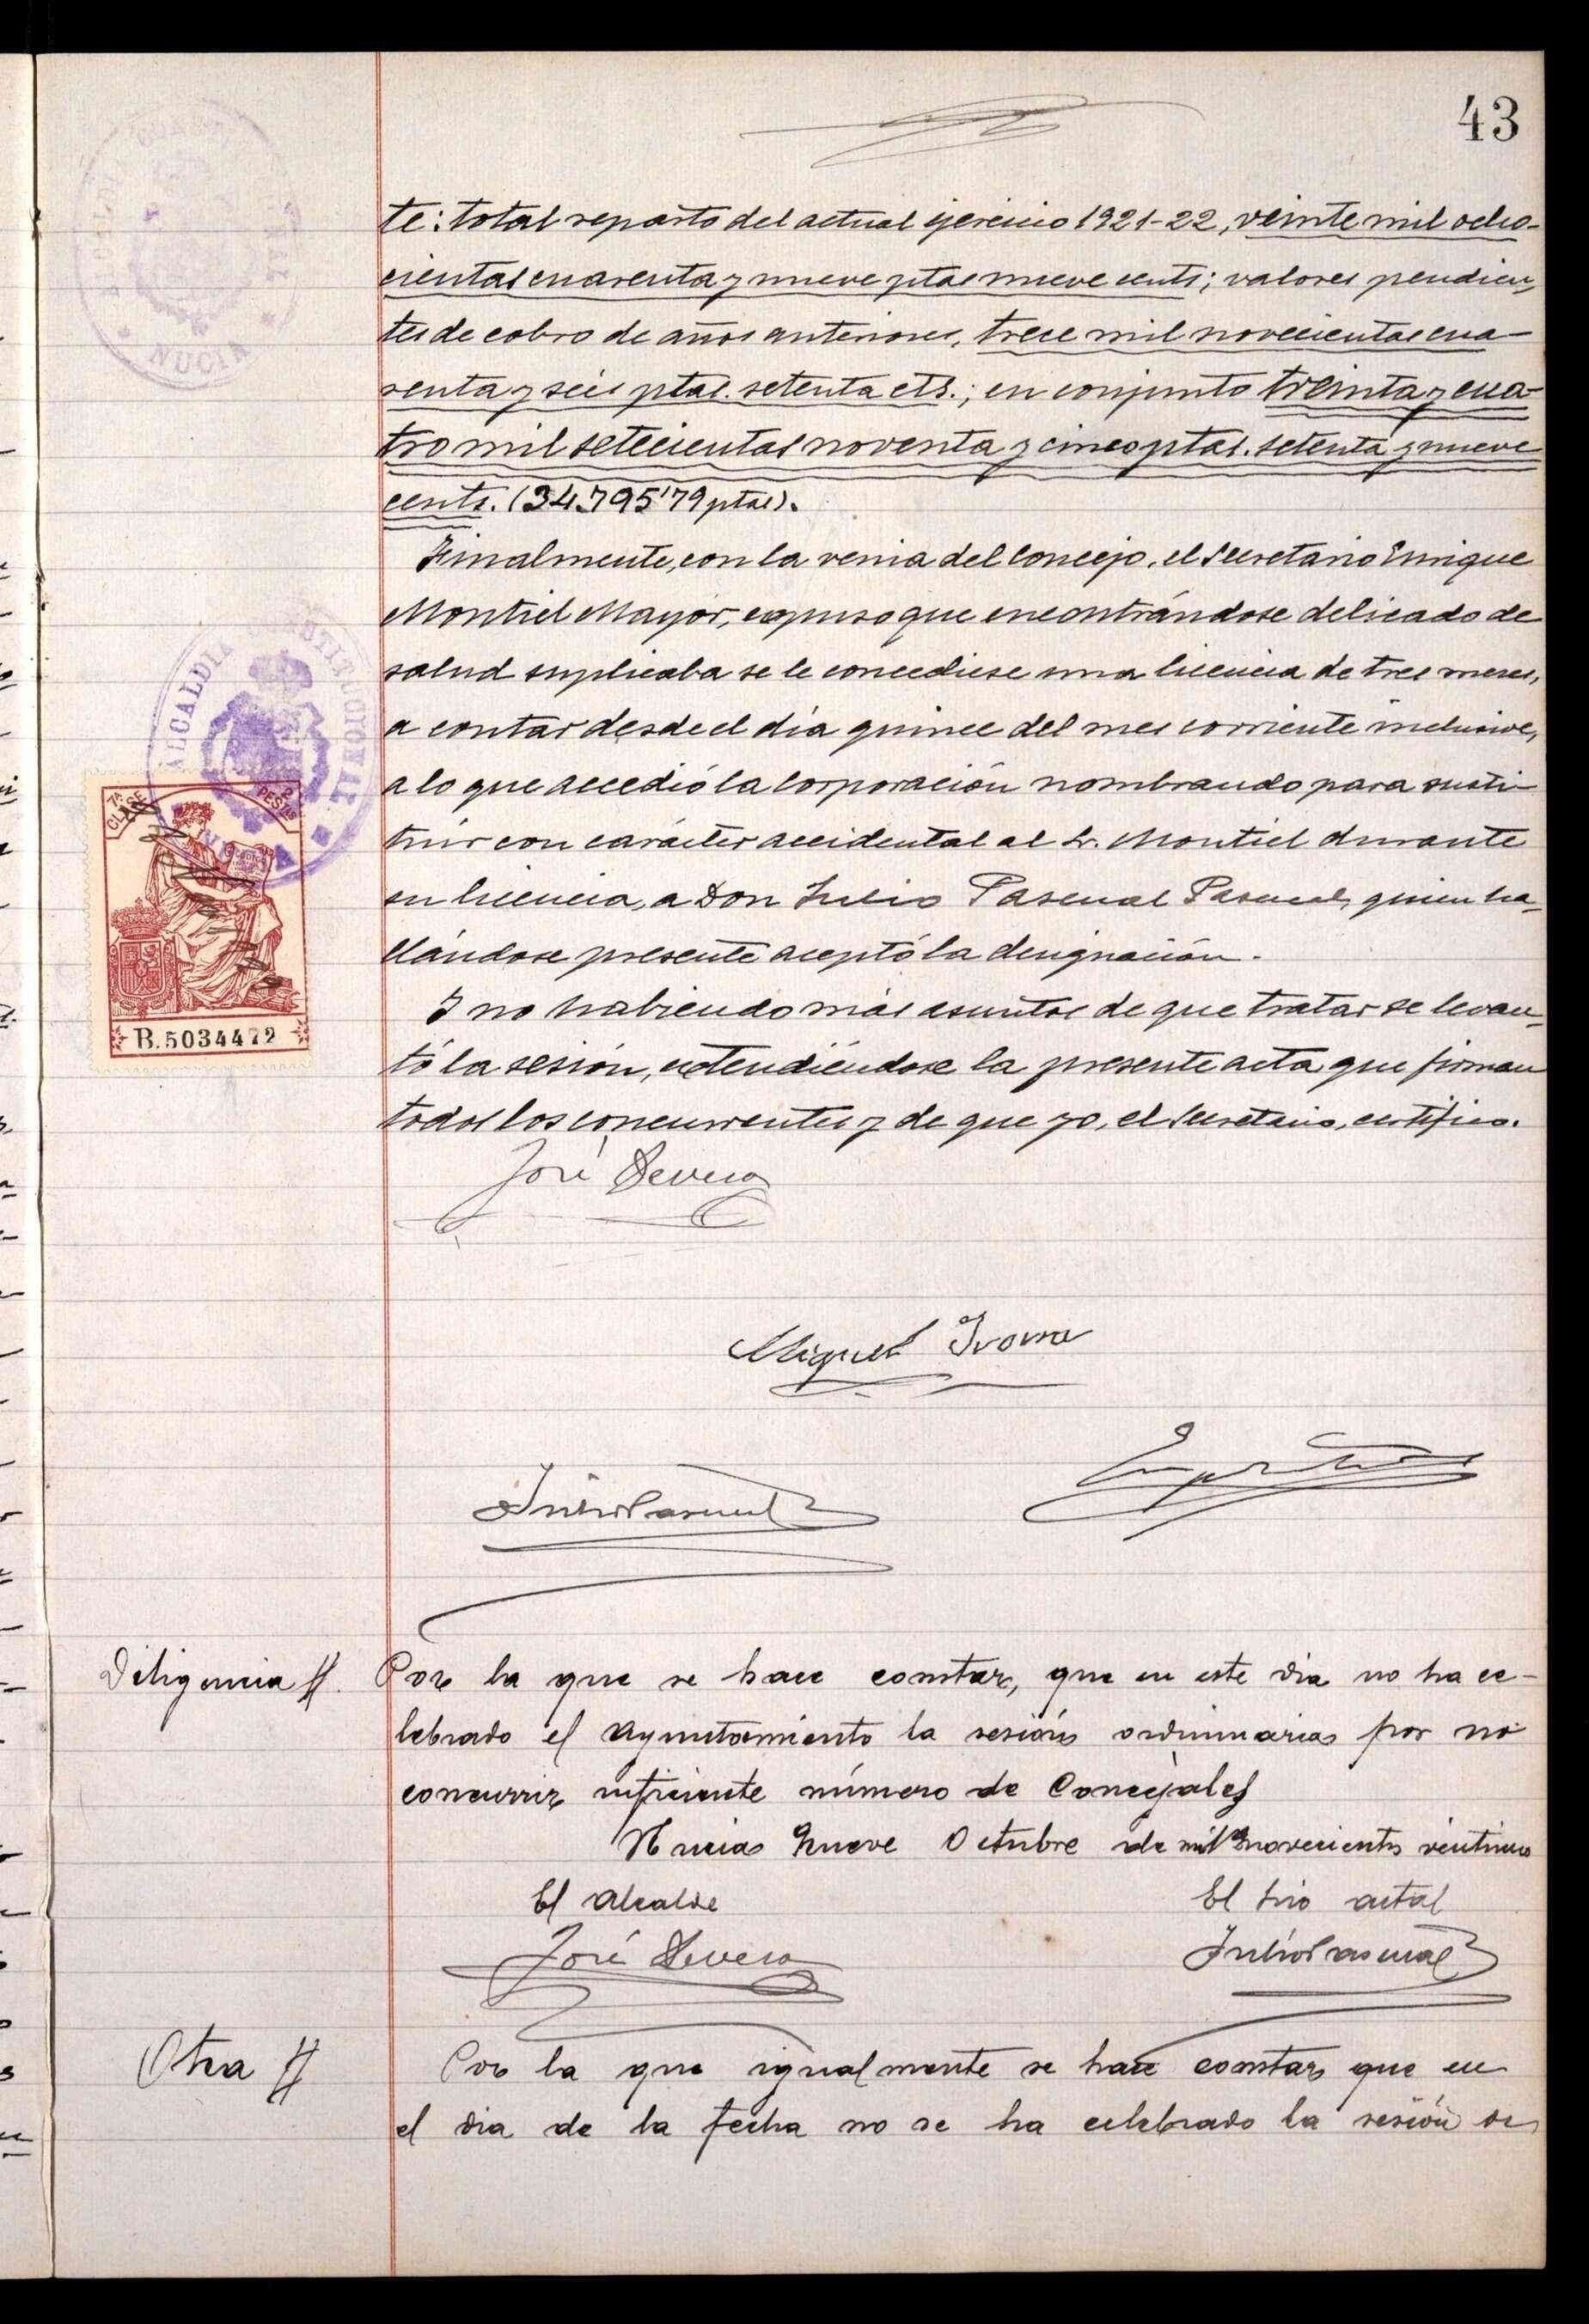 43
te: total reparto del actual ejercicio 1921-22, veinte mil ocho-
cientas cuarenta y nueve ptas nueve cents; valores pendien-
tes de cobro de años anteriores, trece mil novecientas cua-
renta y seis ptas. setenta cts.; en conjunto treinta y cua-
tro mil setecientas noventa y cinco ptas. setenta y nueve
cents. (34.795'79 ptas).
Finalmente, con la venia del Concejo, el Secretario Enrique
Montiel Mayor, expuso que encontrándose delicado de
salud suplicaba se le concediese una licencia de tres meses,
a contar desde el día quince del mes corriente inclusive,
a lo que accedió la Corporación nombrando para susti-
tuir con carácter accidental al Sr. Montiel durante
su licencia, a Don Julio Pascual Pascual, quien ha-
llándose presente aceptó la designación.
Y no habiendo más asuntos de que tratar se levan-
tó la sesión, extendiéndose la presente acta que firman
todos los concurrentes y de que yo, el Secretario, certifico.
ALCALDIA CONSTITUCIONAL
NUCIA
7ª CLASE
2 PESTAS
B.5034472
José Devesa
Miguel Ivorra
Julio Pascual
Diligencia
Por la que se hace constar, que en este dia no ha ce-
lebrado el Ayuntamiento la sesión ordinaria por no
concurrir suficiente número de Concejales
Nucia Nueve Octubre de mil novecientos veintiuno
El Alcalde
El Srio actal
José Devesa
Julio Pascual
Otra
Por la que igualmente se hace constar que en
el dia de la fecha no se ha celebrado la sesión de